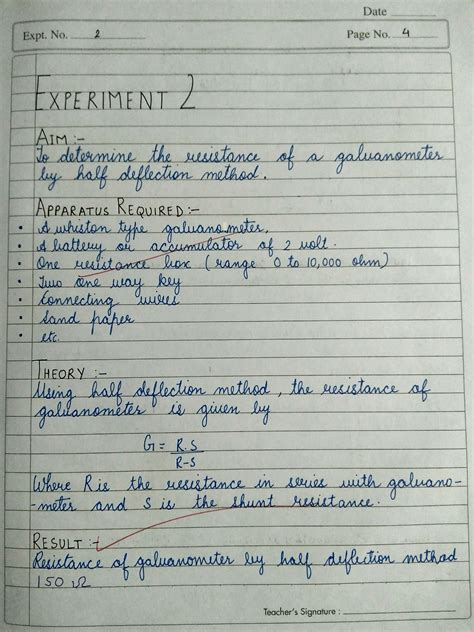 Date
Expt. No. 2 Page No. 4
EXPERIMENT 2
AIM :-
To determine the resistance of a galvanometer
by half deflection method.
APPARATUS REQUIRED :-
• A whiston type galvanometer,
• A battery or accumulator of 2 volt.
• One resistance box (range 0 to 10,000 ohm)
• Two one way key
• Connecting wires
• Sand paper
• etc.
THEORY :-
Using half deflection method, the resistance of
galvanometer is given by
G = R.S
R-S
Where R is the resistance in series with galvano-
-meter and S is the shunt resistance.
RESULT :-
Resistance of galvanometer by half deflection method
150 Ω
Teacher's Signature :